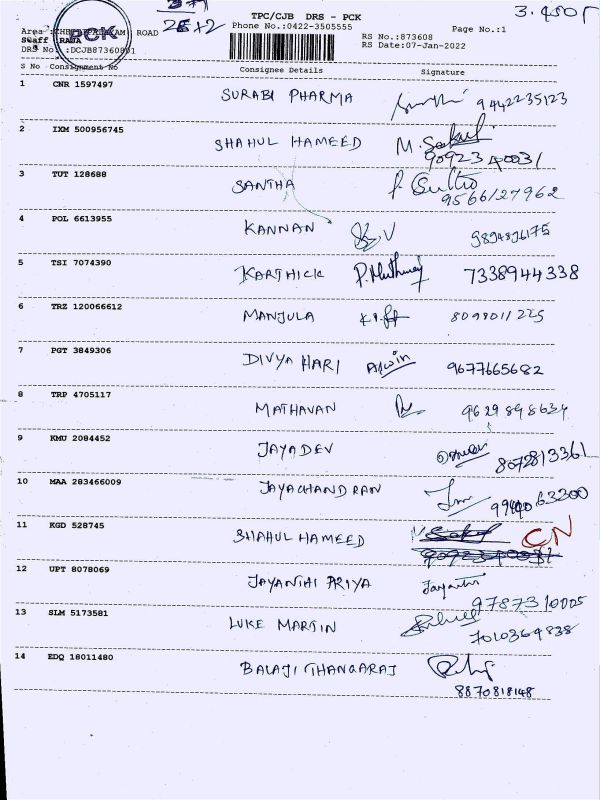 3.450
TPC/CJB DRS - PCK
Area : ROAD 2E+2 Phone No.:0422-3505555 Page No.:1
Staff : RAJA RS No.:873608
DRS No. :DCJB87360801 RS Date:07-Jan-2022
PCK
S No Consignment No Consignee Details Signature
1 CNR 1597497 SURABI PHARMA 9442235123
2 IXM 500956745 SHAHUL HAMEED M.
9092340031
3 TUT 128688 SANTHA P.
9566127962
4 POL 6613955 KANNAN V 9894896175
5 TSI 7074390 KARTHICK P. Muthuraj 7338944338
6 TRZ 120066612 MANJULA 8098011225
7 PGT 3849306 DIVYA HARI Aswin 9677665682
8 TRP 4705117 MATHAVAN 9629898634
9 KMU 2084452 JAYADEV 8072813361
10 MAA 283466009 JAYACHANDRAN 63200
11 KGD 528745 SHAHUL HAMEED CN
9092340031
12 UPT 8078069 JAYANTHI PRIYA Jayanthi
9787310005
13 SLM 5173581 LUKE MARTIN
7010364838
14 EDQ 18011480 BALAJI THANGARAJ
8870818148